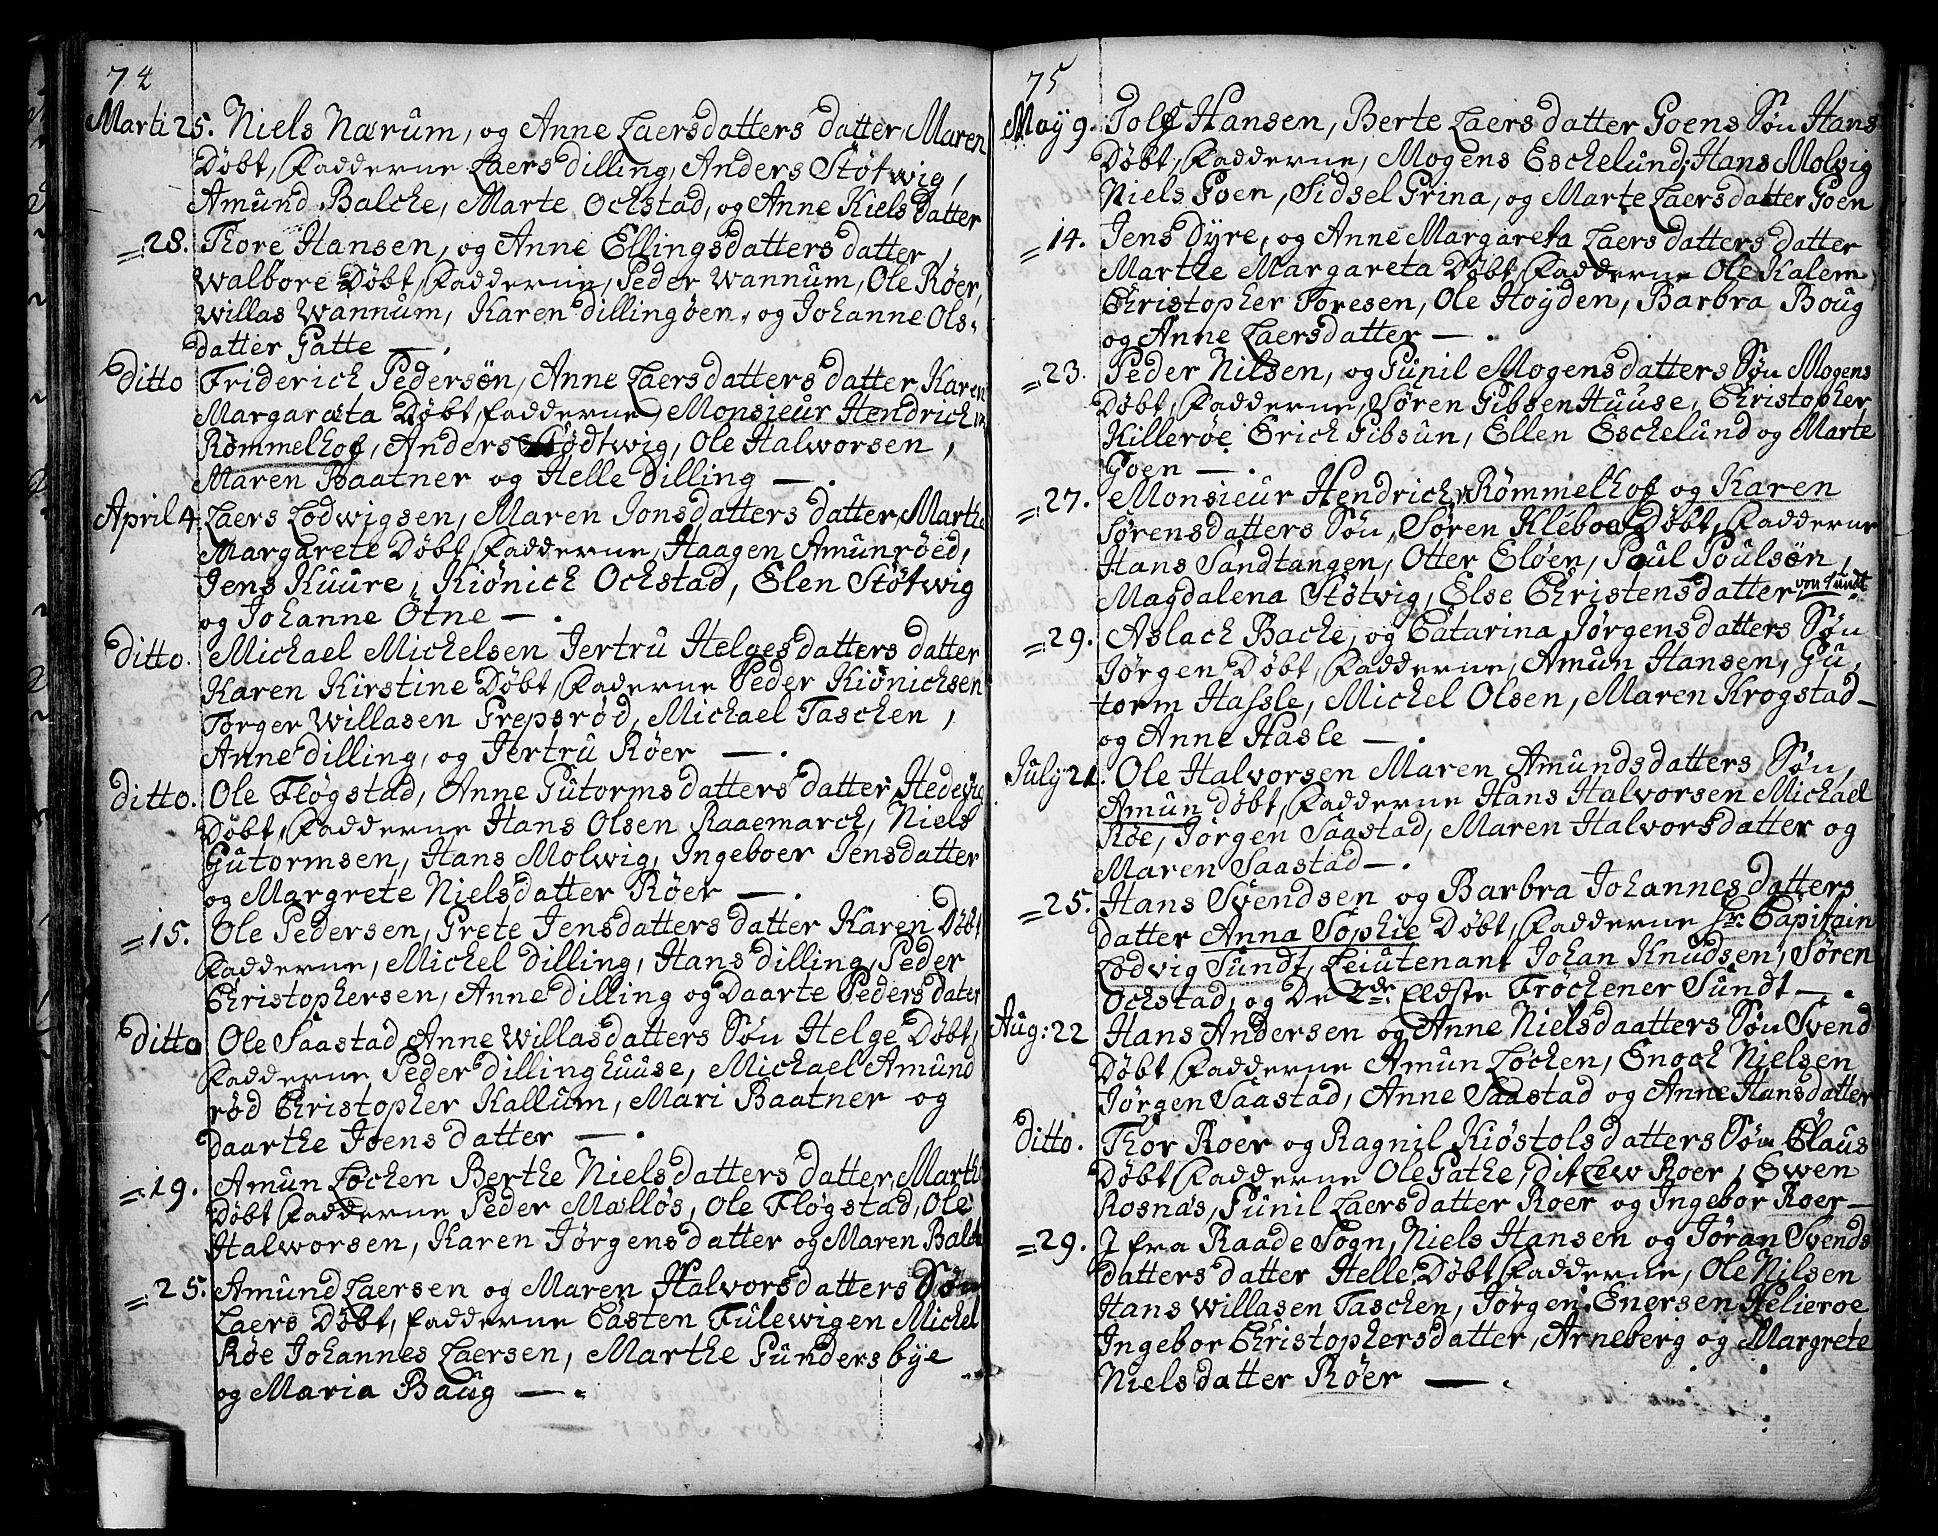 74
Marti 25. Niels Nærum, og Anne Laersdatters datter, Maren
Døbt, Fadderne Laers Dilling, Anders Støtwig,
Amund Balche, Marte Ochstad, og Anne Kiels datter
= 28. Thore Hansen, og Anne Ellingsdatters datter,
Walbore Døbt, Fadderne, Peder Wannum, Ole Røer,
Willas Wannum, Karen Dillingøen, og Johanne Ols-
datter Gatte —.
Ditto Friderich Pedersøn, Anne Laersdatters datter, Karen
Margaræta Døbt, fadderne, Monsieur Hendrich
Rømmelhof, Anders Stødtwig, Ole Halworsen,
Maren Baatner og Helle Dilling —.
April 4. Laers Lodwigsen, Maren Jonsdatters datter, Marthe
Margarete Døbt, Fadderne, Haagen Amunrøed,
Jens Kuure, Kiönich Ochstad, Elen Støtwig
og Johanne Otne —.
Ditto. Michael Michelsen Jertru Helgesdatters datter
Karen Kirstine Døbt, Faderne Peder Kiönichsen
Torger Willasen Grepsrød, Michael Taschen,
Anne Dilling, og Jertru Røer —.
Ditto. Ole Fløgstad, Anne Gutormsdatters datter, Hedewig
Døbt, Fadderne Hans Olsen Raaemarch, Niels
Gutormsen, Hans Molwig, Ingeboer Jensdatter
og Margrete Nielsdatter Røer —.
= 15. Ole Pedersen, Grete Jensdatters datter Karen Døbt
Fadderne, Michel Dilling, Hans Dilling, Peder
Christophersen, Anne Dilling og Daarte Peders dater
Ditto Ole Saastad Anne Willasdatters Søn Helge Døbt,
Fadderne Peder Dillinghuuse, Michael Amund
rød Christopher Kallum, Mari Baatner og
Daarthe Joens datter —.
= 19. Amun Løchen Berthe Nielsdatters datter, Marthe
Døbt Fadderne Peder Mælløs, Ole Fløgstad, Ole
Halworsen, Karen Jørgensdatter og Maren Balch
= 25. Amund Laersen og Maren Halvorsdatters Søn
Laers Døbt, fadderne Casten Fulewigen Michel
Røe Johannes Laersen, Marthe Gundersbye
og Maria Baug —.
75
May 9. Rolf Hansen, Berte Laers datter Goens Søn Hans
Døbt, Fadderne, Mogens Eschelund, Hans Molvig
Niels Goen, Sidsel Grina, og Marte Laersdatter Goen
= 14. Jens Dyre, og Anne Margareta Laersdatters datter
Marthe Margareta Døbt, Fadderne Ole Kalem
Christopher Toresen, Ole Høyden, Barbra Boug
og Anne Laersdatter —.
= 23. Peder Nilsen, og Gunil Mogensdatters Søn Mogens
Døbt, Fadderne, Søren Gibsen Huuse, Christopher
Killerøe Erich Gibsun, Ellen Eschelund og Marte
Goen —.
= 27. Monsieur Hendrich Rømmelhof og Karen
Sørensdatters Søn, Søren Klebow Døbt, Fadderne
Hans Sandtangen, Otter Eløen, Poul Poulsøn,
Magdalena Støtvig, Else Christensdatter von Sundt
= 29. Aslach Bache, og Catarina Jørgensdatters Søn
Jørgen Døbt, Fadderne, Amun Hansen, Gu-
torm Hassle, Michel Olsen, Maren Krogstad
og Anne Hasle —.
July 21. Ole Halvorsen Maren Amundsdatters Søn,
Amun Døbt, Fadderne Hans Halvorsen Michael
Røe, Jørgen Saastad, Maren Halvorsdatter og
Maren Saastad —.
= 25. Hans Svendsen og Barbra Johannesdatters
datter Anna Sophie Døbt, Fadderne Hr: Capitain
Lodvig Sundt, Leiutenant Johan Knudsen, Søren
Ochstad, og De 2de Eldste Frøchener Sundt —.
Aug: 22 Hans Andersen og Anne Nielsdaatters Søn Svend
Døbt, Fadderne Amun Løchen, Enoch Nielsen
Jørgen Saastad, Anne Saastad og Anne Hansdatter
Ditto. Thor Roer og Ragnil Kiøstolsdatters Søn Claus
Døbt, Fadderne Ole Gathe, Ditlew Roer, Ewen
Rosnæs, Gunil Laersdatter Roer og Ingebor Roer —
= 29. I fra Raade Sogn, Niels Hansen og Jøran Svends
datters datter Helle, Døbt Fadderne, Ole Nilsen
Hans Willasen Taschen, Jørgen Enersen Helierøe
Ingebor Christophersdatter, Arneberg og Margrete
Nielsdatter Røer —.